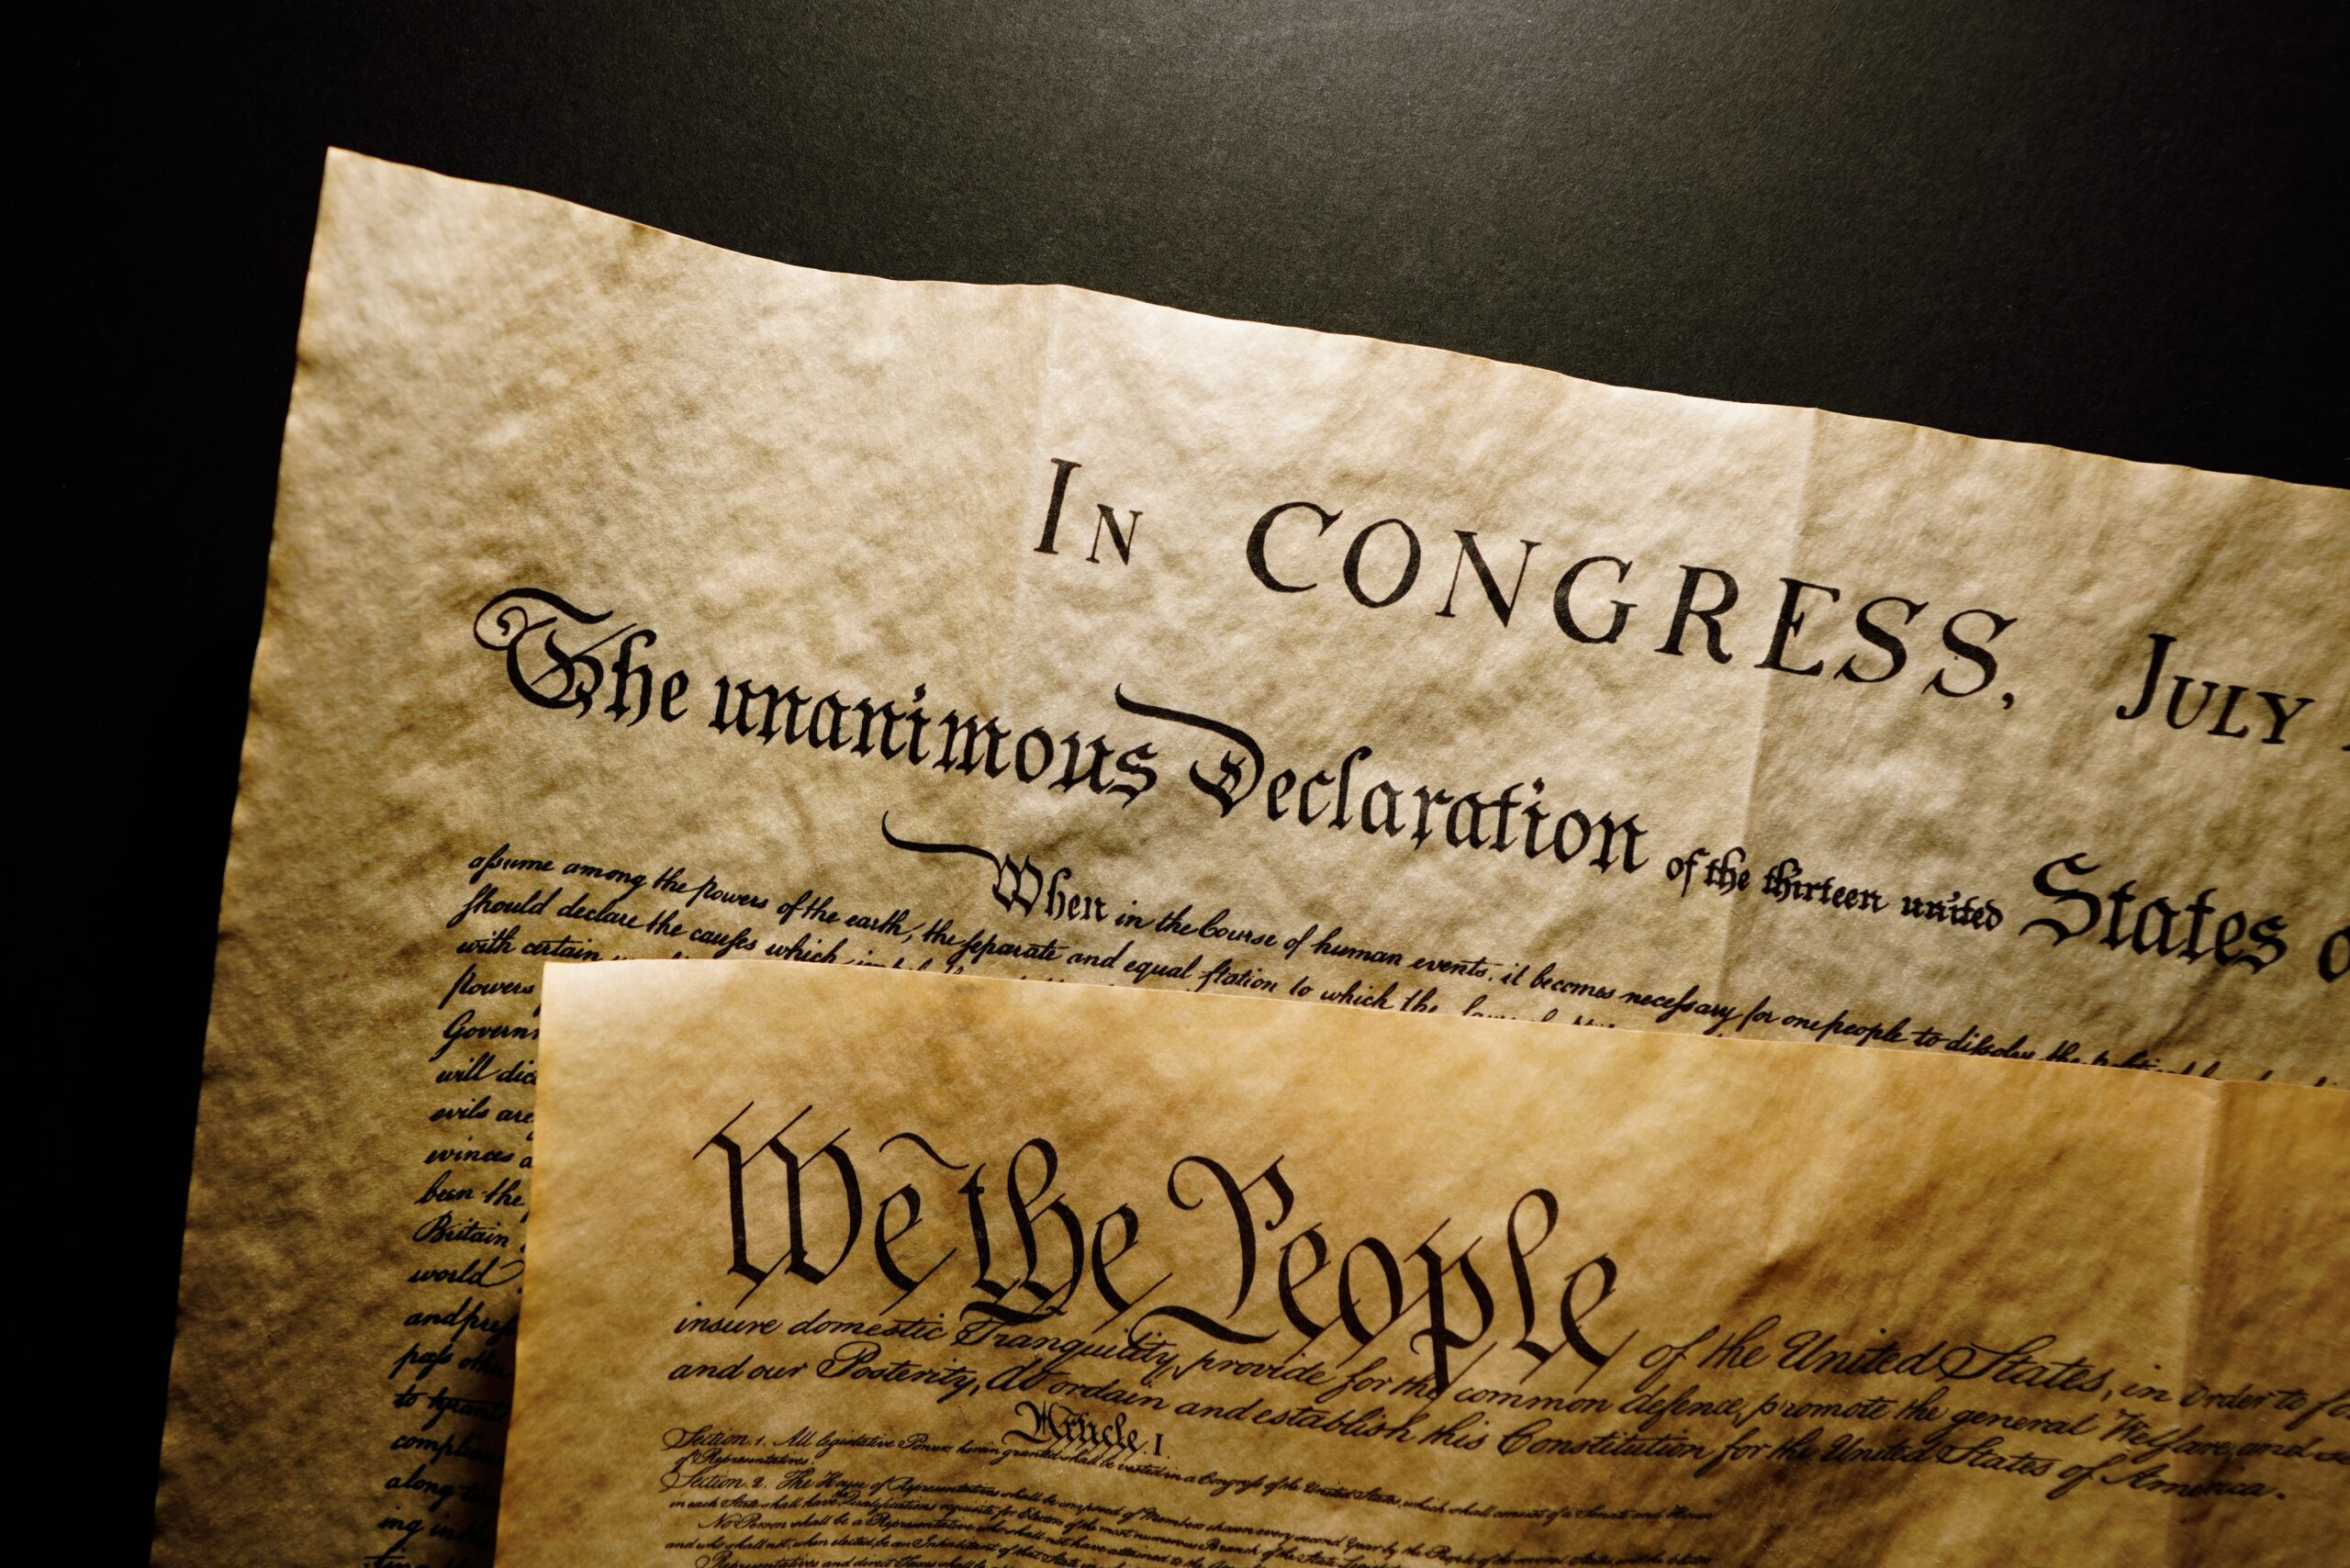 In CONGRESS, July
The unanimous Declaration of the thirteen united States
When in the Course of human events, it becomes necessary for one people to dissolve the
assume among the powers of the earth, the separate and equal station to which the
should declare the causes which
with certain
powers
will
evils are
winces
been the
Britain
world
to
along
We the People of the United States, in Order to
insure domestic Tranquility, provide for the common defence, promote the general Welfare, and
and our Posterity, do ordain and establish this Constitution for the United States of America.
Article. I.
Section. 1. All legislative Powers herein granted shall be vested in a Congress of the United States, which shall consist of a Senate and House
of Representatives.
Section. 2. The House of Representatives shall be composed of Members chosen every second Year by the People of the several States, and the
in each State shall have Qualifications requisite for Electors of the most numerous Branch of the State
No Person shall be a Representative who shall not have attained to the
and who shall not, when elected, be an Inhabitant of that State in which
Representatives and direct Taxes shall be